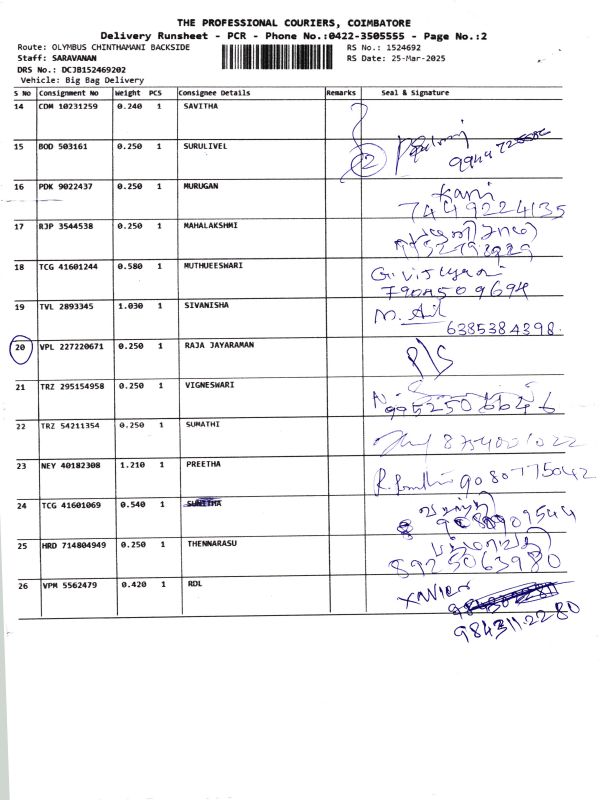 THE PROFESSIONAL COURIERS, COIMBATORE
Delivery Runsheet - PCR - Phone No.:0422-3505555 - Page No.:2
Route: OLYMBUS CHINTHAMANI BACKSIDE RS No.: 1524692
Staff: SARAVANAN RS Date: 25-Mar-2025
DRS No.: DCJB152469202
Vehicle: Big Bag Delivery
S No Consignment No Weight PCS Consignee Details Remarks Seal & Signature
14 CDM 10231259 0.240 1 SAVITHA
15 BOD 503161 0.250 1 SURULIVEL 2
16 PDK 9022437 0.250 1 MURUGAN Kani
7449224135
17 RJP 3544538 0.250 1 MAHALAKSHMI
18 TCG 41601244 0.580 1 MUTHUEESWARI
19 TVL 2893345 1.030 1 SIVANISHA
6385384398.
20 VPL 227220671 0.250 1 RAJA JAYARAMAN P/S
21 TRZ 295154958 0.250 1 VIGNESWARI
22 TRZ 54211354 0.250 1 SUMATHI 8754001022
23 NEY 40182308 1.210 1 PREETHA 9080775042
24 TCG 41601069 0.540 1
25 HRD 714804949 0.250 1 THENNARASU
8925063980
26 VPM 5562479 0.420 1 RDL XAVIER
9843112280